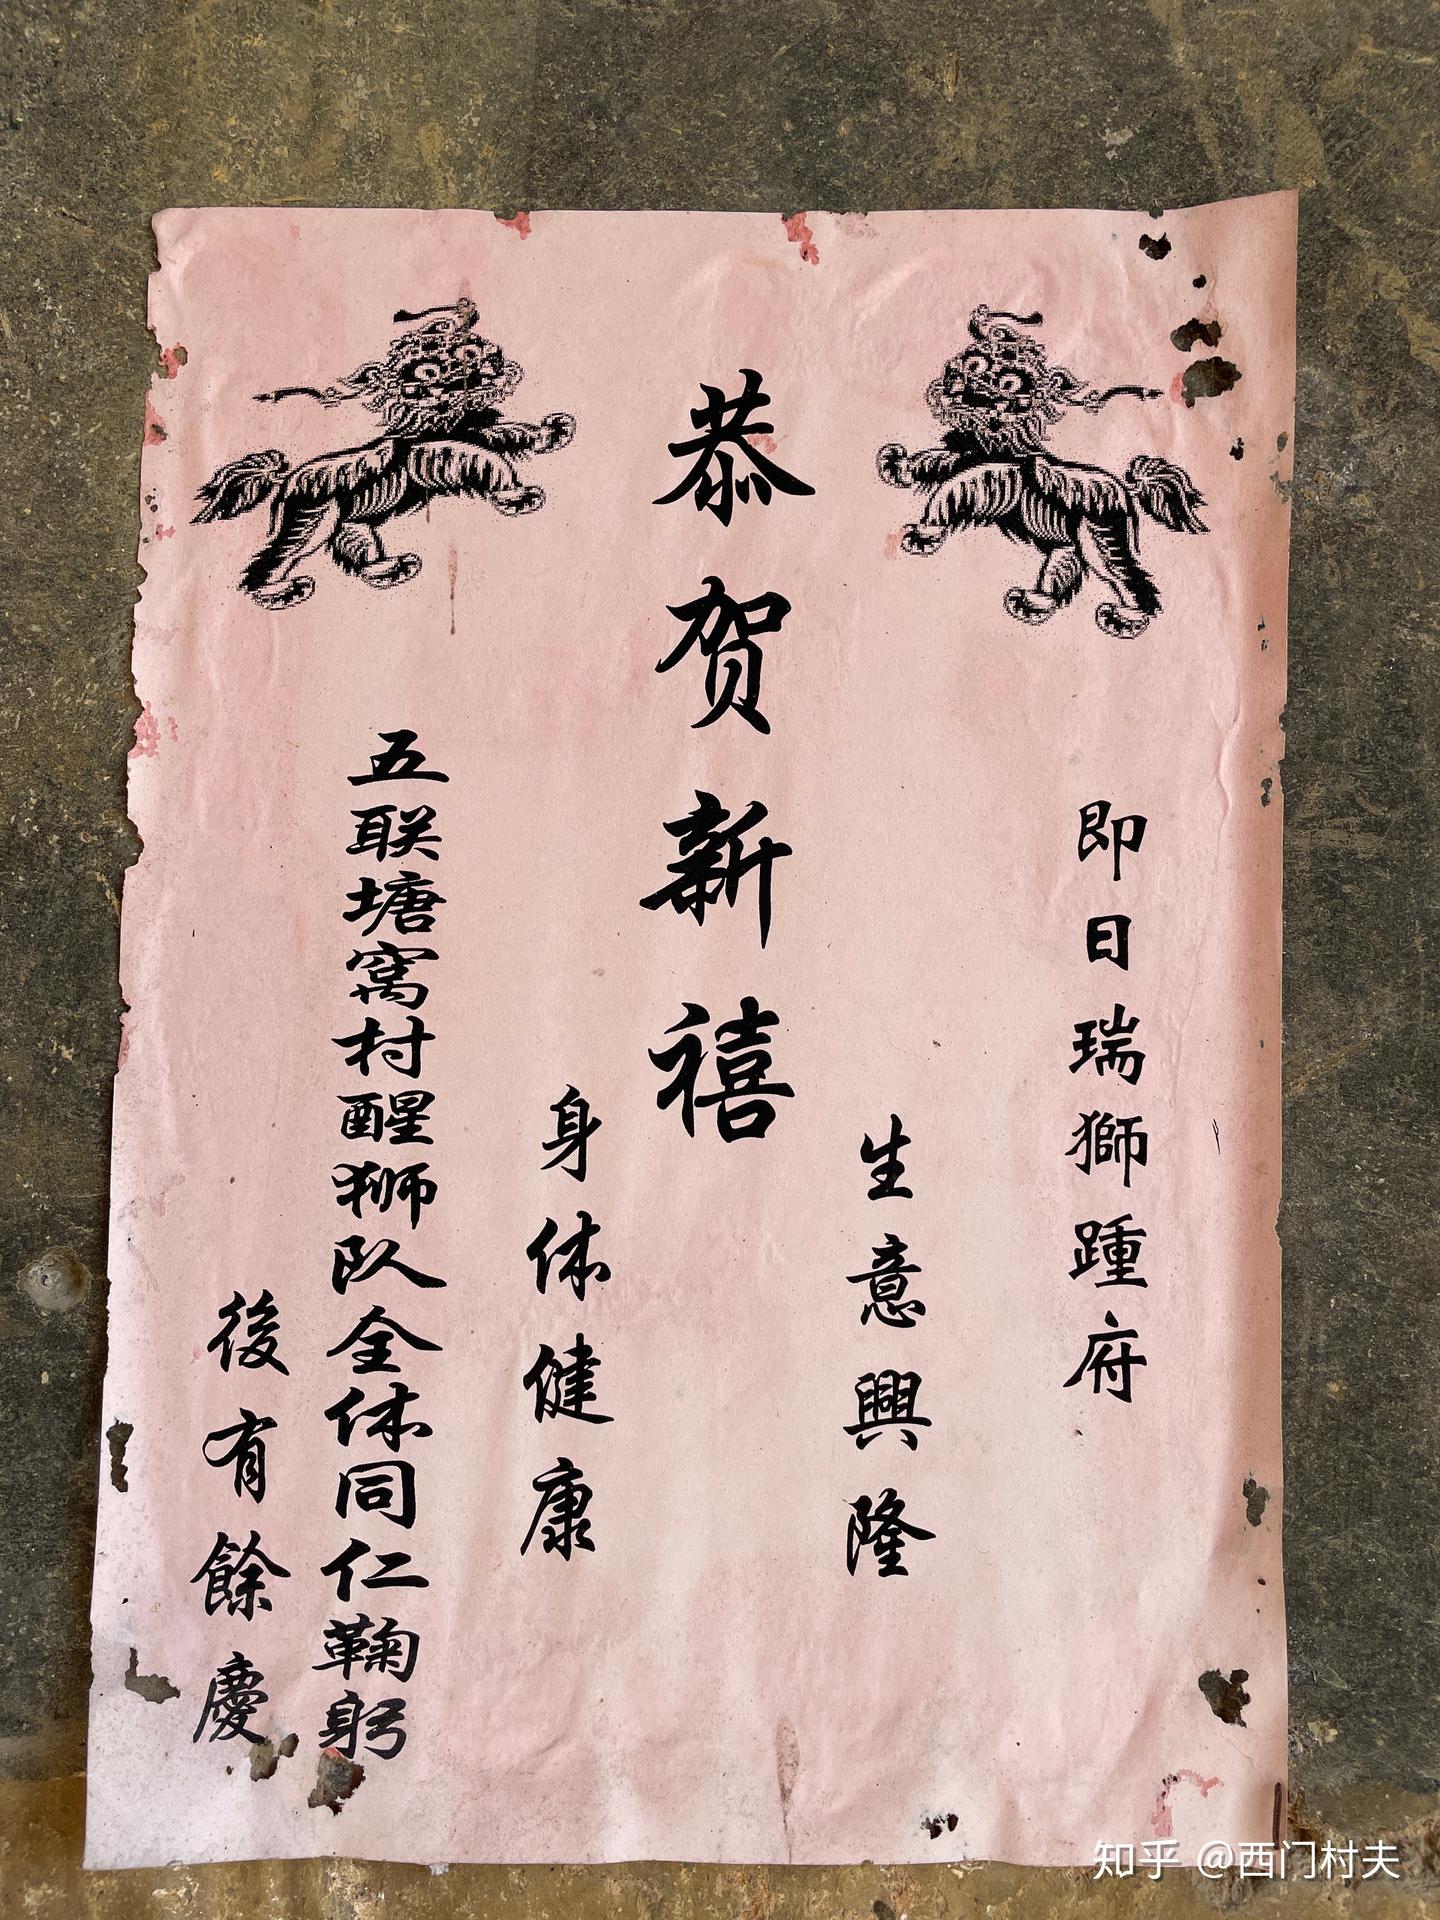 即日瑞獅踵府
生意興隆
恭贺新禧
身体健康
五联塘窝村醒狮队全体同仁鞠躬
後有餘慶
知乎 @西门村夫